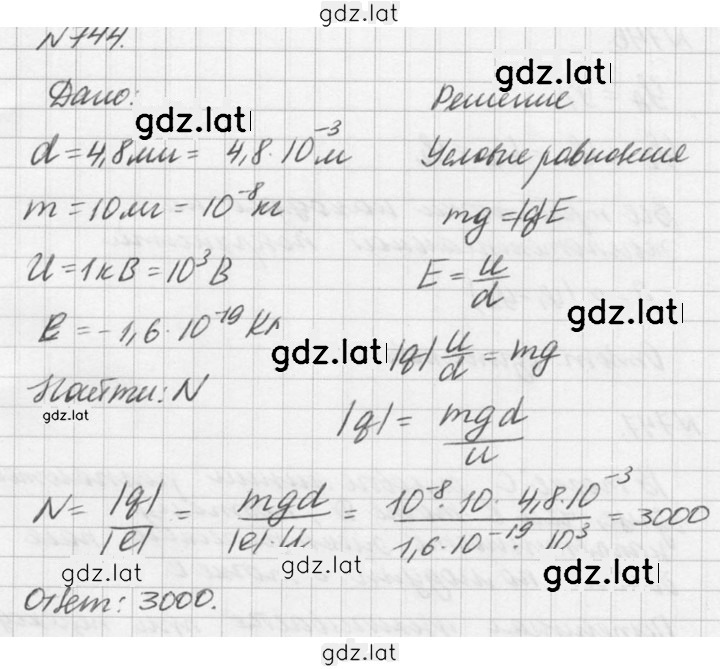 gdz.lat
N744.
gdz.lat
Дано:
Решение
gdz.lat
d = 4,8 мм = 4,8·10⁻³ м
Условие равновесия
m = 10 мг = 10⁻⁸ кг
mg = |q|E
U = 1кВ = 10³ В
E = u/d
gdz.lat
e = -1,6·10⁻¹⁹ Кл
gdz.lat
|q| u/d = mg
Найти: N
gdz.lat
|q| = mgd/u
N = |q|/|e| = mgd/|e|·u = 10⁻⁸·10·4,8·10⁻³/1,6·10⁻¹⁹·10³ = 3000
gdz.lat
gdz.lat
gdz.lat
Ответ: 3000.
gdz.lat